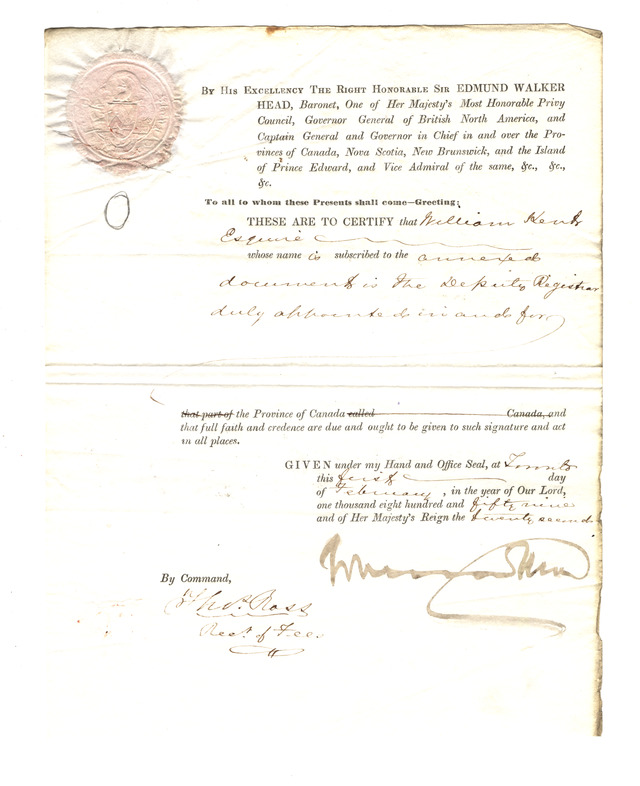 By His Excellency The Right Honorable Sir EDMUND WALKER
HEAD, Baronet, One of Her Majesty's Most Honorable Privy
Council, Governor General of British North America, and
Captain General and Governor in Chief in and over the Pro-
vinces of Canada, Nova Scotia, New Brunswick, and the Island
of Prince Edward, and Vice Admiral of the same, &c., &c.,
&c.
To all to whom these Presents shall come—Greeting:
THESE ARE TO CERTIFY that William Kent
Esquire
whose name is subscribed to the annexed
document is the Deputy Registrar
duly appointed in and for
that part of the Province of Canada called Canada, and
that full faith and credence are due and ought to be given to such signature and act
in all places.
GIVEN under my Hand and Office Seal, at Toronto
this first day
of February, in the year of Our Lord,
one thousand eight hundred and fifty nine
and of Her Majesty's Reign the twenty second
By Command,
Ross
Rect. of Fees